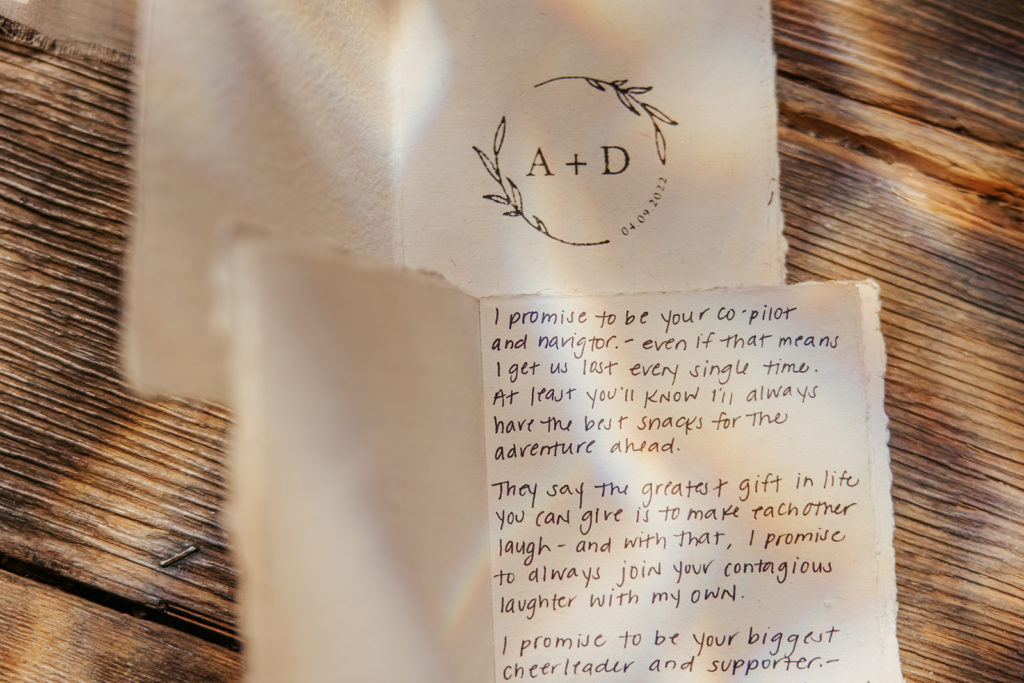 A + D
04.09.2022
I promise to be your co-pilot
and navigtor. - even if that means
I get us lost every single time.
At least you'll know I'll always
have the best snacks for the
adventure ahead.
They say the greatest gift in life
you can give is to make eachother
laugh - and with that, I promise
to always join your contagious
laughter with my own.
I promise to be your biggest
cheerleader and supporter. -